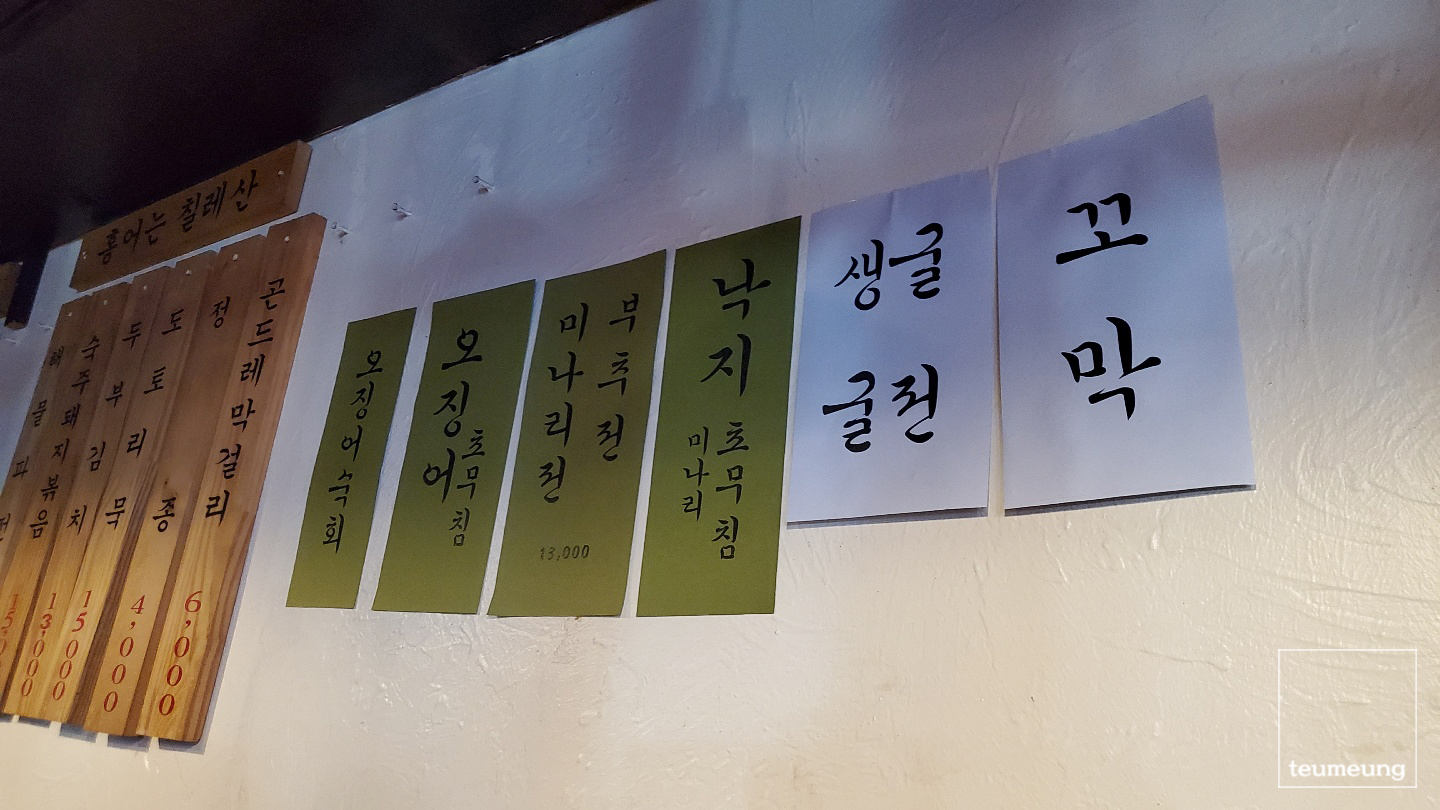 홍어는 칠레산
해물파전
숙주돼지볶음 15,000
두부김치 13,000
도토리묵 15,000
정종 4,000
곤드레막걸리 6,000
오징어숙회
오징어 초무침
부추전
미나리전
13,000
낙지 초무침
미나리
굴전
생굴
꼬막
teumeung